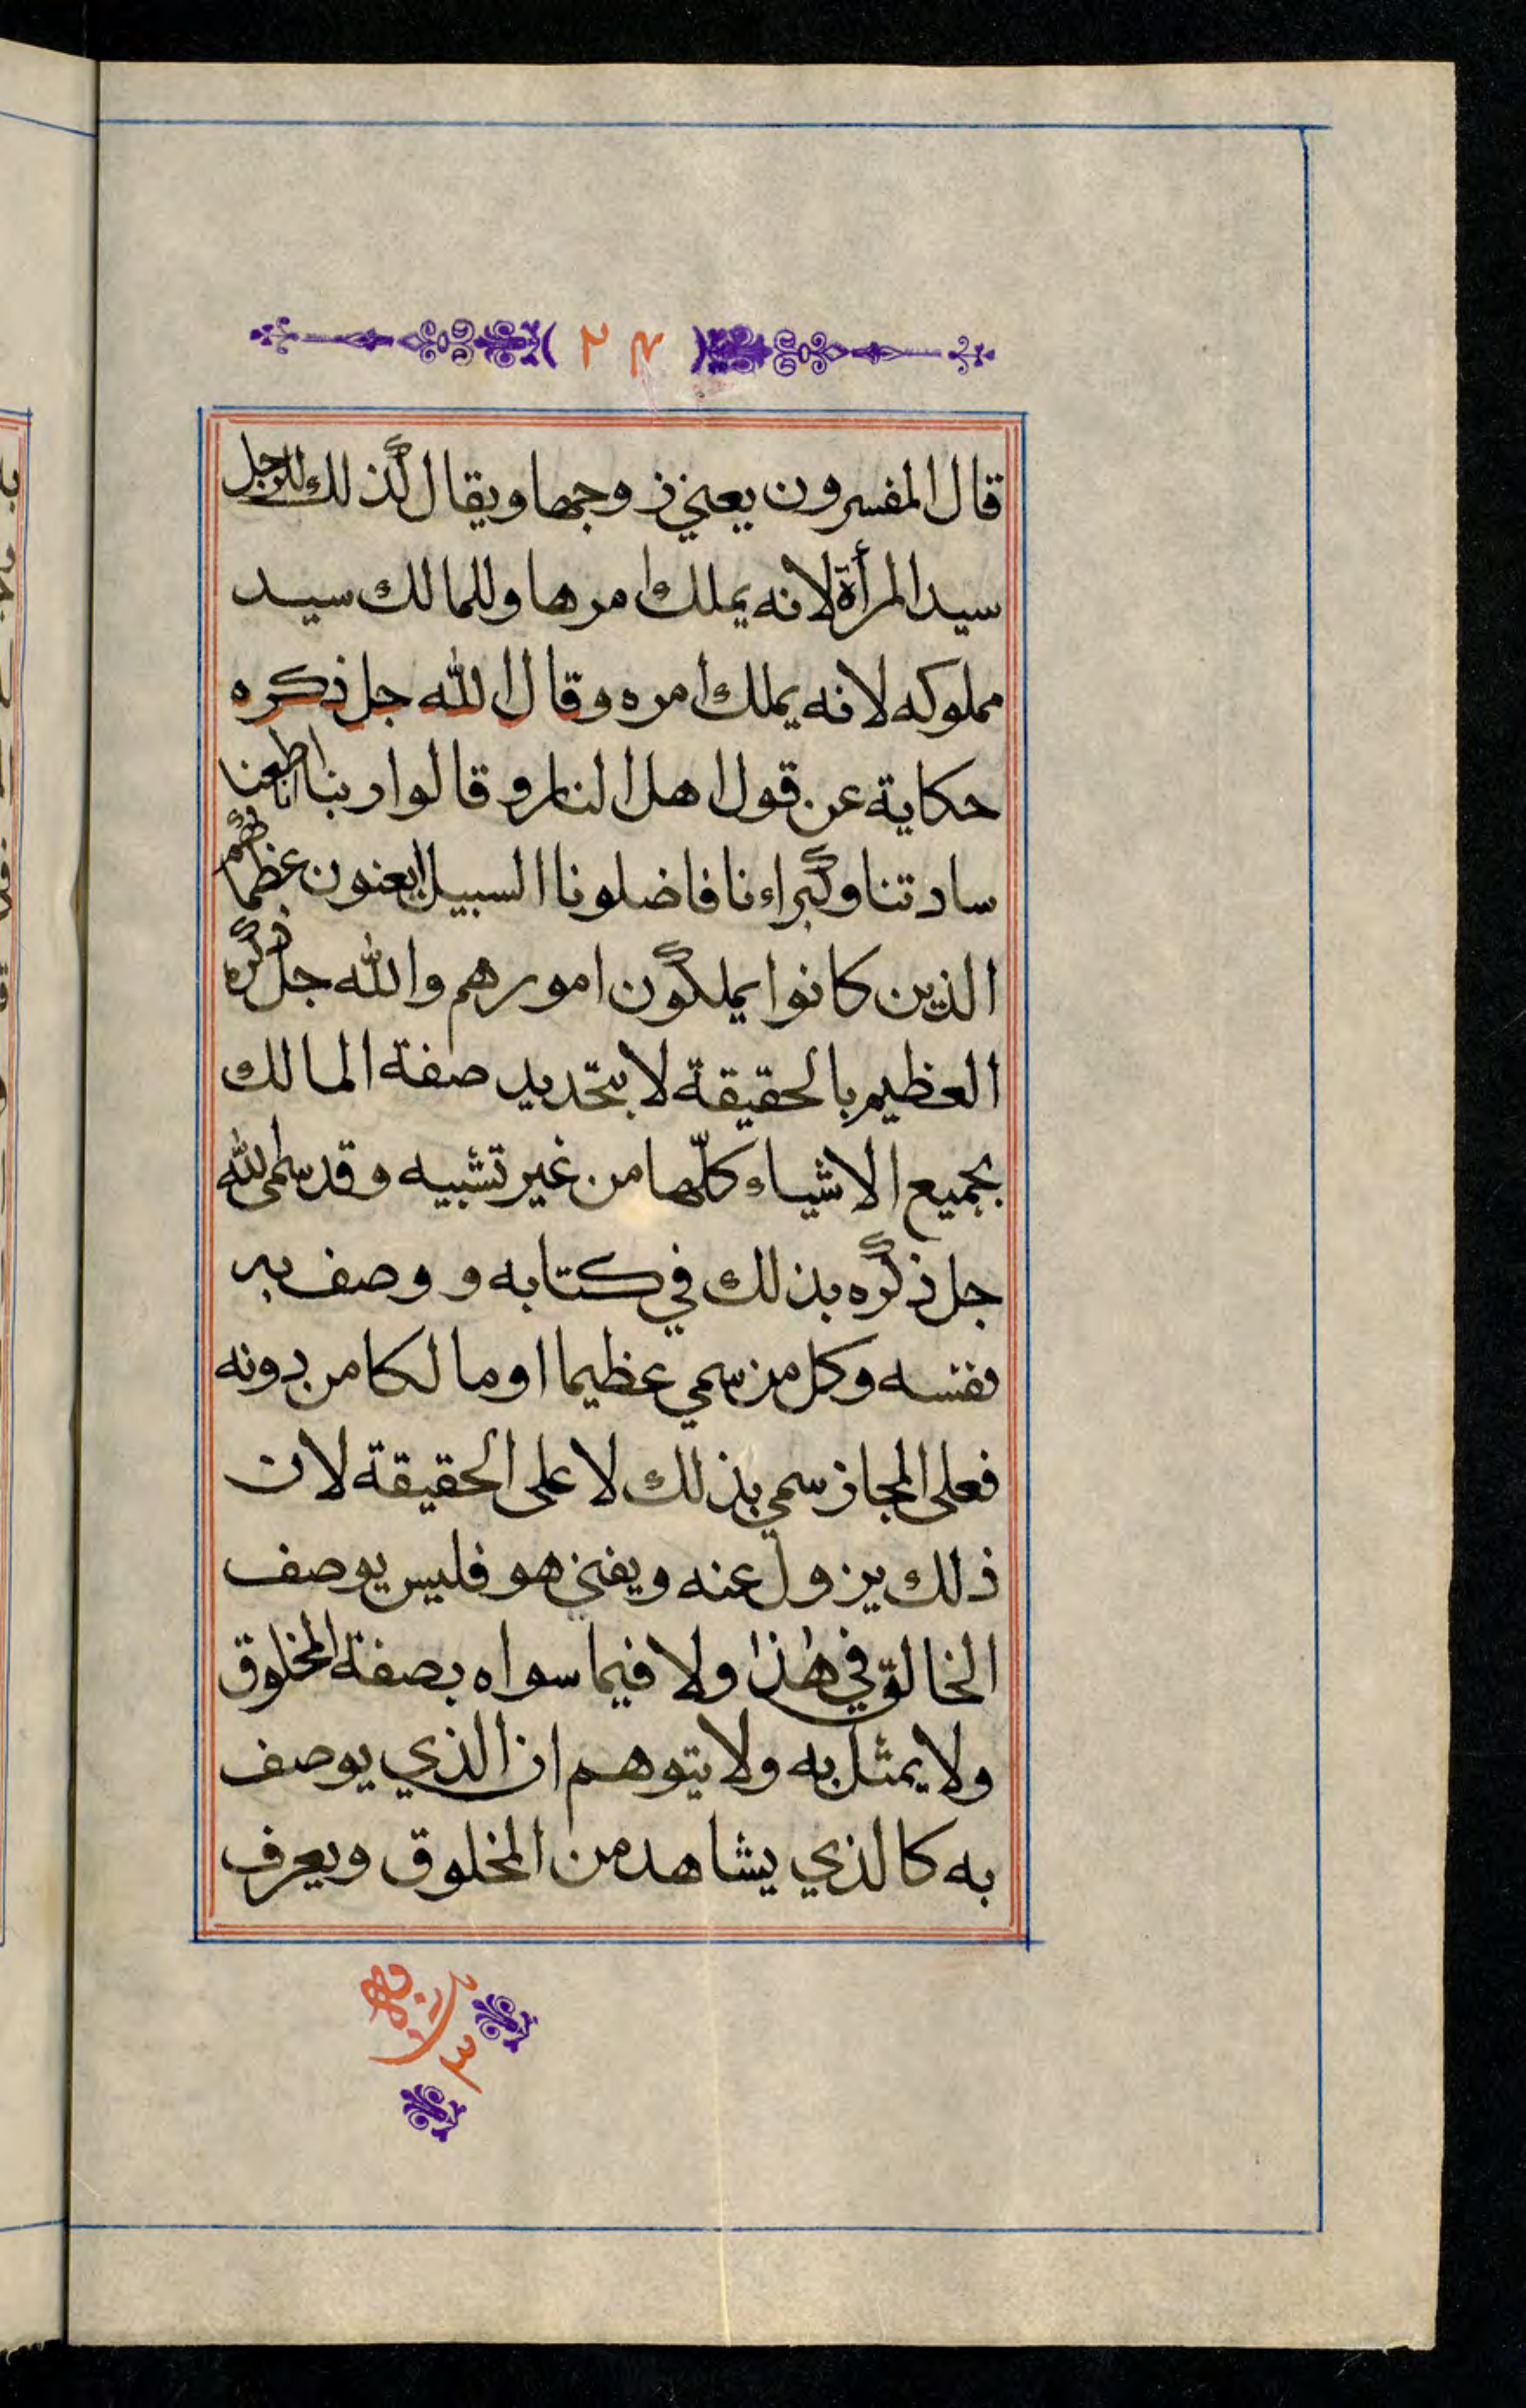 ٢٤
قال المفسرون يعني زوجها ويقال كذلك للرجل
سيد المرأة لانه يملك امرها وللمالك سيد
مملوكه لانه يملك امره وقال الله جل ذكره
حكاية عن قول اهل النار وقالوا ربنا انا اطعنا
سادتنا وكبراءنا فاضلونا السبيلا يعنون عظماءهم
الذين كانوا يملكون امورهم والله جل ذكره
العظيم بالحقيقة لا بتحديد صفة المالك
بجميع الاشياء كلّها من غير تشبيه وقد سمى الله
جل ذكره بذلك في كتابه و وصف به
نفسه وكل من سمي عظيما او مالكا من دونه
فعلى المجاز سمي بذلك لا على الحقيقة لان
ذلك يزول عنه ويفنى هو فليس يوصف
الخالق في هذا ولا فيما سواه بصفة المخلوق
ولا يمثل به ولا يتوهم ان الذي يوصف
به كالذي يشاهد من المخلوق ويعرف